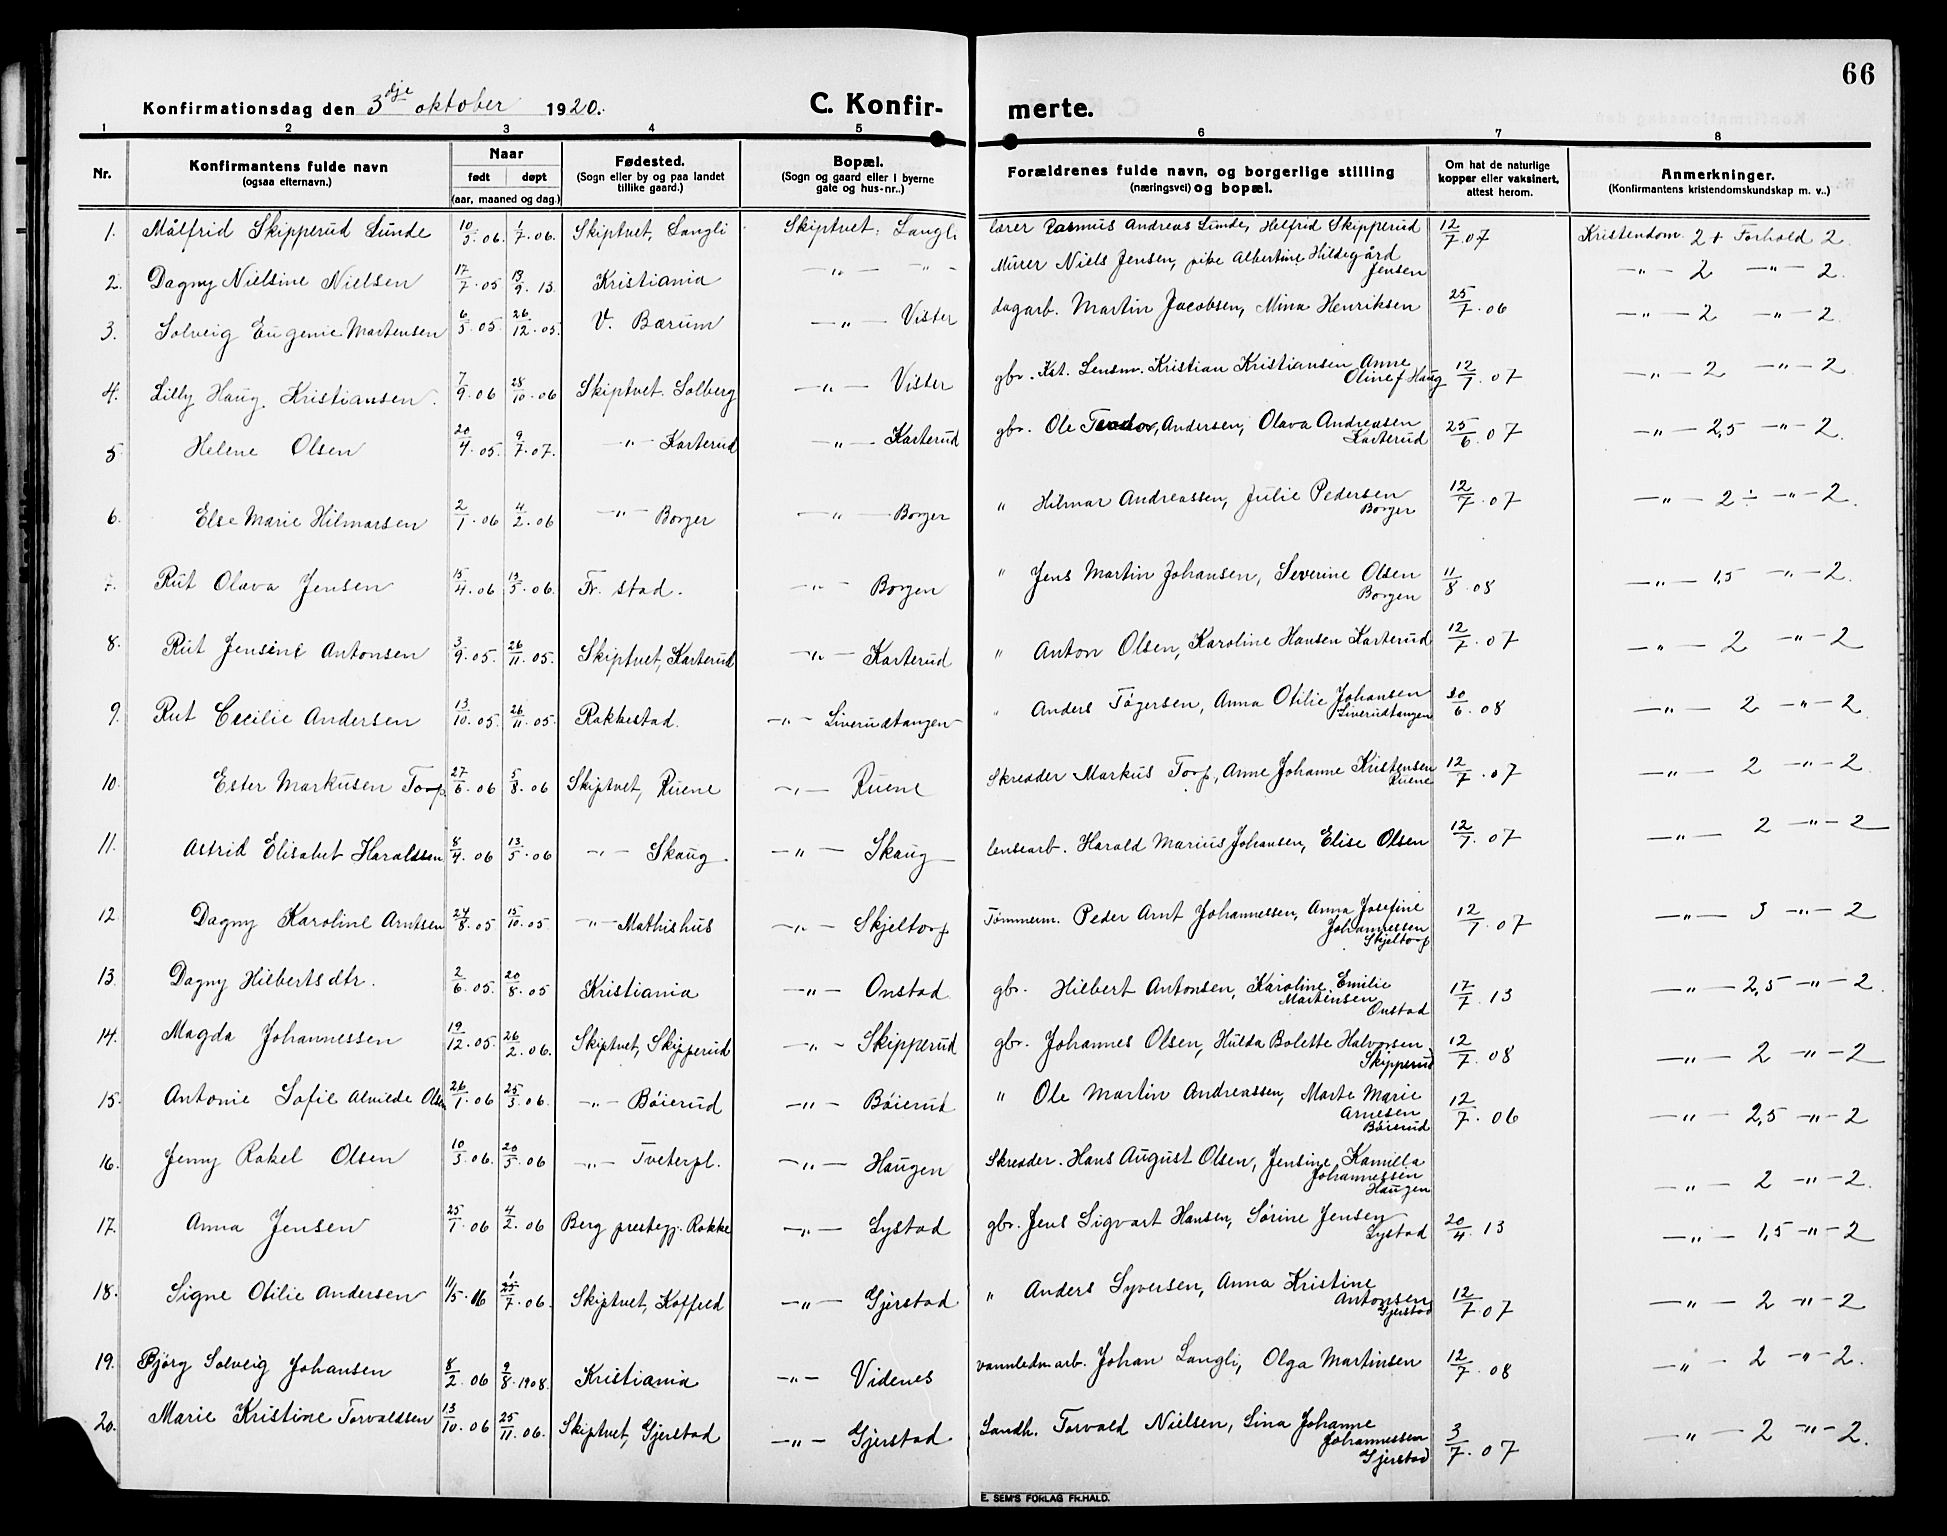 66
Konfirmationsdag den 3dje oktober 1920.
C. Konfir-
merte.
1 2 3 4 5 6 7 8
Nr.
Konfirmantens fulde navn
(ogsaa efternavn.)
Naar
født døpt
(aar, maaned og dag.)
Fødested.
(Sogn eller by og paa landet
tillike gaard.)
Bopæl.
(Sogn og gaard eller i byerne
gate og hus-nr..)
Forældrenes fulde navn, og borgerlige stilling
(næringsvei) og bopæl.
Om hat de naturlige
kopper eller vaksinert,
attest herom.
Anmerkninger.
(Konfirmantens kristendomskundskap m. v..)
1. Målfrid Skipperud Lunde 10/3 06. 1/7 06. Skiptvet, Langli Skiptvet. Langli lærer Rasmus Andreas Lunde, Helfrid Skipperud 12/7 07 Kristendom 2+ Forhold 2.
2. Dagny Nielsine Nielsen 17/7 05 13/9 13. Kristiania —„— „ – Murer Niels Jensen, pike Albertine Hildegård
Jensen —„— 2 —„— 2.
3. Solveig Eugenie Martensen 6/5 05 26/12 05. V. Bærum —„— Vister dagarb. Martin Jacobsen, Mina Henriksen 25/7 06 —„— 2 —„— 2.
4. Lilly Haug Kristiansen. 7/9 06 28/10 06 Skiptvet. Solberg —„— Vister gbr. Kst. Lensm. Kristian Kristiansen Anne
Olinef Haug 12/7 07 —„— 2 —„— 2.
5 Helene Olsen 20/4 05. 9/7 07. —„— Karterud —„— Karterud gbr. Ole Teodor, Andersen, Olava Andreasen
Karterud 25/6 07 —„— 2,5 —„— 2.
6. Else Marie Hilmarsen 2/1 06 4/2 06 —„— Borger —„— Borger „ Hilmar Andreassen, Julie Pedersen
Borger 12/7 07 —„— 2 ÷ —„— 2.
7. Rut Olava Jensen 15/4 06 13/5 06. Fr. stad. —„— Borgen „ Jens Martin Johansen, Severine Olsen
Borgen 11/8 08 —„— 1,5 —„— 2.
8. Rut Jensine Antonsen 3/9 05. 26/11 05. Skiptvet, Karterud —„— Karterud „ Anton Olsen, Karoline Hansen Karterud 12/7 07 —„— 2 —„— 2
9. Rut Cecilie Andersen 13/10 05. 26/11 05. Rakkestad. —„— Liverudtangen „ Anders Tøgersen, Anna Otilie Johansen
Liverudtangen 30/6 08 —„— 2 —„— 2
10. Ester Markusen Torp 27/6 06 5/8 06 Skiptvet, Ruene —„— Ruene Skredder Markus Torp, Anne Johanne Kristensen
Ruene 12/7 07 —„— 2 —„— 2
11. Astrid Elisabet Haraldsen 8/4 06 13/5 06 —„— Skaug —„— Skaug lensearb. Harald Marius Johansen, Elise Olsen 12/7 07 —„— 2 —„— 2
12. Dagny Karoline Arntsen 24/8 05 15/10 05 —„— Mathishus —„— Skjeltorp Tømmerm. Peder Arnt Johannessen, Anna Josefine
Johannessen
Skjeltorp 12/7 07 —„— 3 —„— 2
13. Dagny Hilbertsdtr. 2/6 05. 20/8 05 Kristiania —„— Onstad gbr. Hilbert Antonsen, Karoline Emilie
Martensen
Onstad 17/7 13 —„— 2,5 —„— 2.
14. Magda Johannessen 19/12 05. 26/2 06. Skiptvet, Skipperud —„— Skipperud gbr. Johannes Olsen, Hulda Bolette Halvorsen
Skipperud 12/7 08 —„— 2 —„— 2
15. Antonie Sofie Alvilde Olsen 26/1 06 25/3 06. —„— Bøierud —„— Bøierud „ Ole Martin Andreassen, Marte Marie
Arnesen
Bøierud 12/7 06 —„— 2,5 —„— 2
16. Jenny Rakel Olsen 10/3 06. 20/5 06 —„— Tveterpl. —„— Haugen Skredder. Hans August Olsen, Jensine Kamilla
Johannessen
Haugen —„— 2 —„— 2.
17. Anna Jensen 25/1 06 4/2 06 Berg prestegj. Rokke —„— Lystad gbr. Jens Sigvart Hansen, Sørine Jensen
Lystad 20/4 13 —„— 1,5 —„— 2
18. Signe Otilie Andersen 11/5 06 1/7 06. Skiptvet, Koffred —„— Gjerstad „ Anders Syversen, Anna Kristine
Antonsen
Gjerstad 12/7 07 —„— 2 —„— 2
19. Bjørg Solveig Johansen 8/2 06 9/8 1908. Kristiania —„— Videnes vannledn. arb. Johan Langli, Olga Martinsen 12/7 08 —„— 2 —„— 2.
20. Marie Kristine Torvaldsen 13/10 06 25/11 06. Skiptvet, Gjerstad —„— Gjerstad Landh. Torvald Nielsen, Lina Johanne
Johannessen
Gjerstad 3/7 07 —„— 2 —„— 2.
E. SEM'S FORLAG FR.HALD.